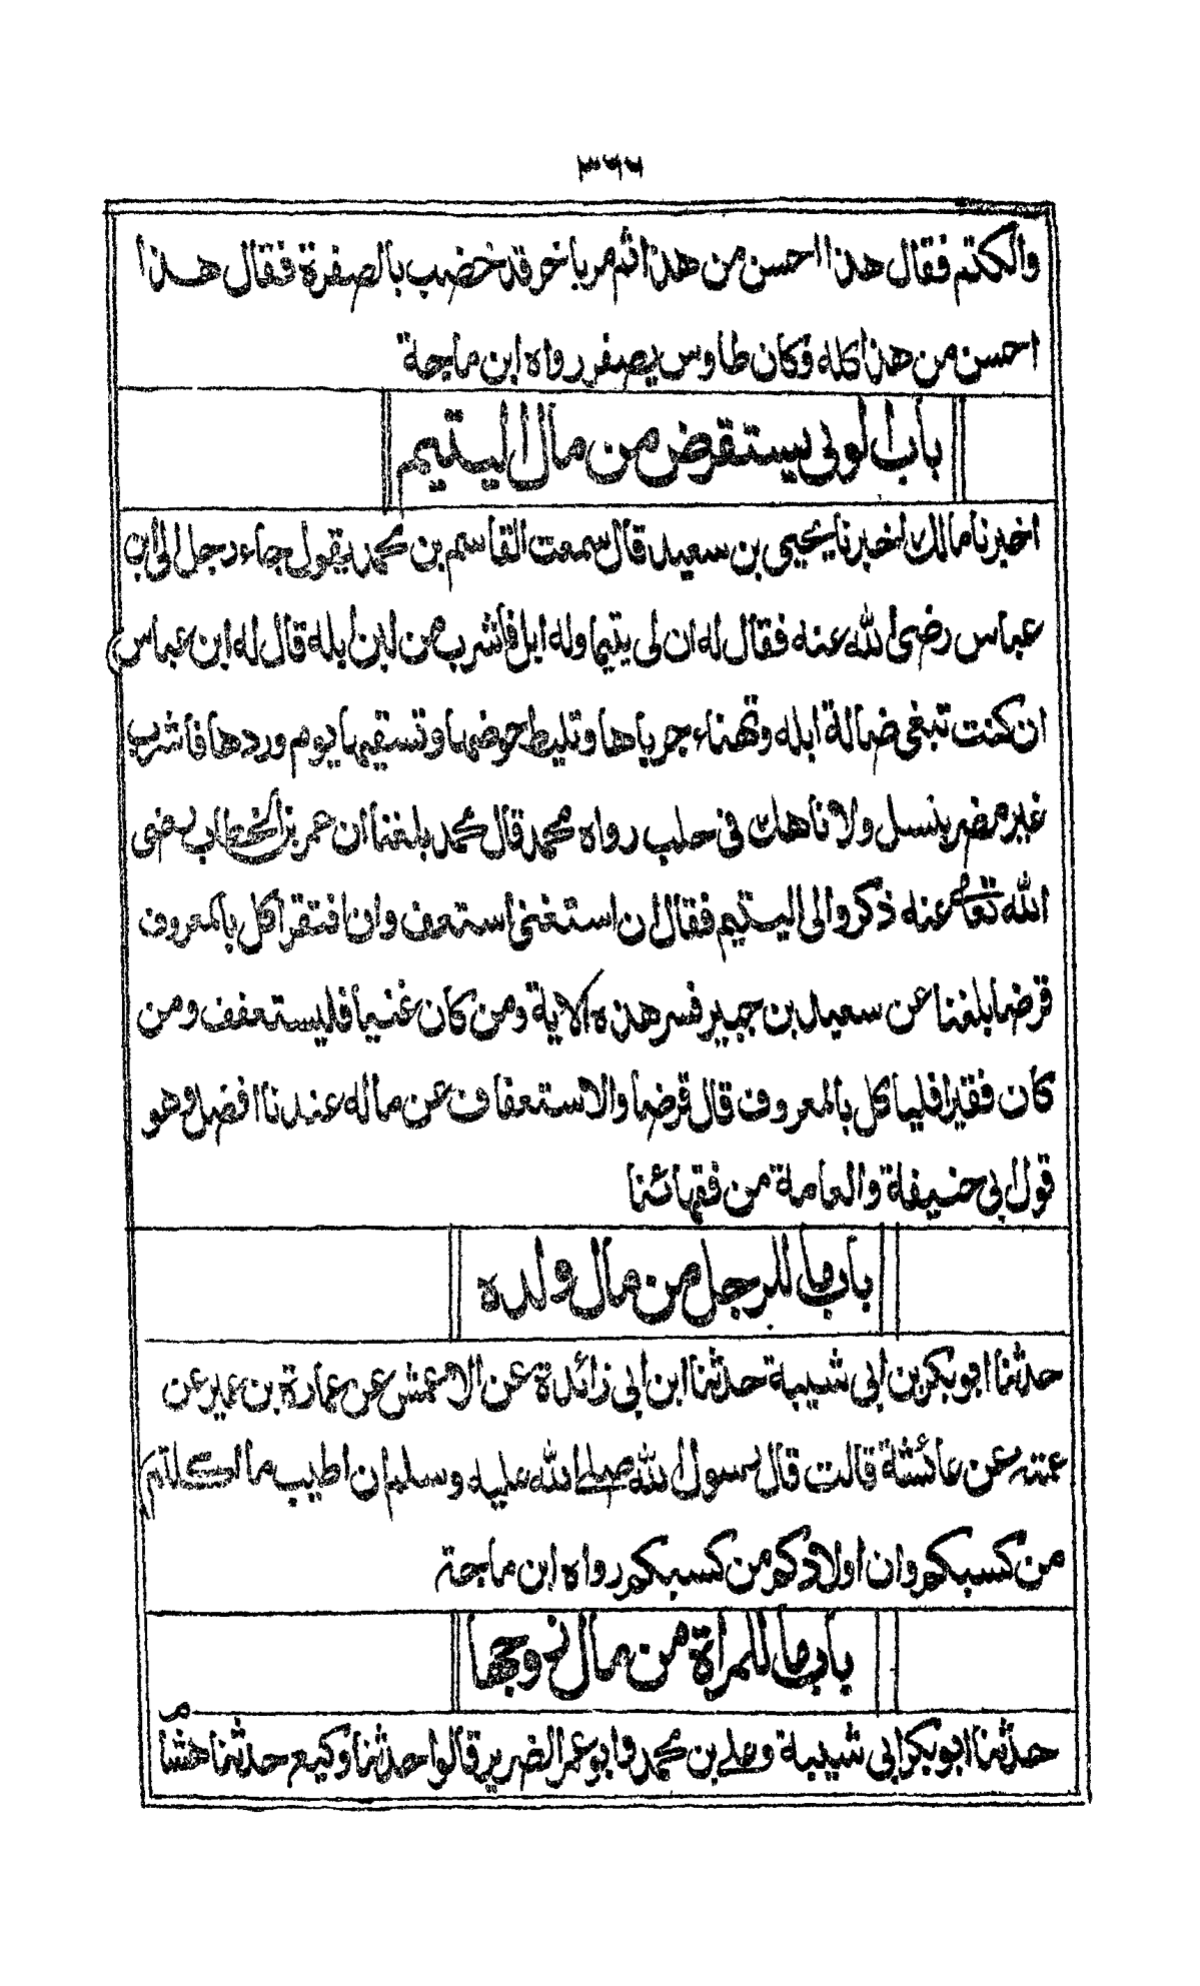 ٣٦٦
والكتم فقال هذا احسن من هذا ثم مر باخر قد خضب بالصفرة فقال هذا
احسن من هذا كله وكان طاوس يصفر رواه ابن ماجة
باب الولى يستقرض من مال اليتيم
اخبرنا مالك اخبرنا يحيى بن سعيد قال سمعت القاسم بن محمد يقول جاء رجل الى ابن
عباس رضى الله عنه فقال له ان لى يتيما وله ابل فاشرب من لبن ابله قال له ابن عباس
ان كنت تبغى ضالة ابله وتهناء جرباها وتليط حوضها وتسقيها يوم وردها فاشرب
غير مضر بنسل ولا ناهك فى حلب رواه محمد قال محمد بلغنا ان عمر بن الخطاب رضى
الله تعا عنه ذكر والى اليتيم فقال ان استغنى استعف وان افتقر اكل بالمعروف
قرضا بلغنا عن سعيد بن جبير فسر هذه الاية ومن كان غنيا فليستعفف ومن
كان فقيرا فلياكل بالمعروف قال قرضا والاستعفاف عن ماله عندنا افضل وهو
قول ابى حنيفة والعامة من فقهائنا
باب ما للرجل من مال ولده
حدثنا ابو بكر بن ابى شيبة حدثنا ابن ابى زائدة عن الاعمش عن عمارة بن عمير عن
عمته عن عائشة قالت قال رسول الله صلى الله عليه وسلم ان اطيب ما اكلتم
من كسبكم وان اولادكم من كسبكم رواه ابن ماجة
باب ما للمراة من مال زوجها
حدثنا ابو بكر ابى شيبة وعلى بن محمد وابو عمر الضرير قالوا حدثنا وكيع حدثنا هشام